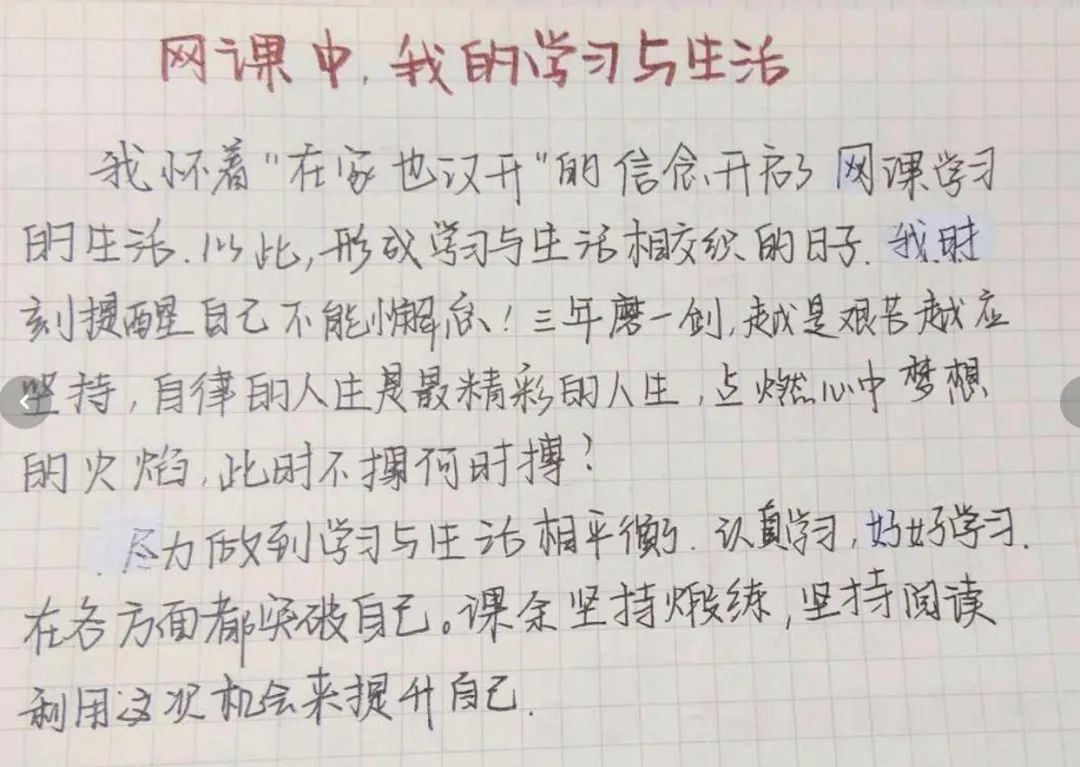 网课中,我的学习与生活
我怀着"在家也汉开"的信念、开启了网课学习
的生活.以此,形成学习与生活相交织的日子.我.时
刻提醒自己不能懈怠!三年磨一剑,越是艰苦越应
坚持,自律的人生是最精彩的人生,点燃心中梦想
的火焰,此时不搏何时搏?
尽力做到学习与生活相平衡.认真学习,好好学习.
在各方面都突破自己。课余坚持煅练,坚持阅读
利用这次机会来提升自己.